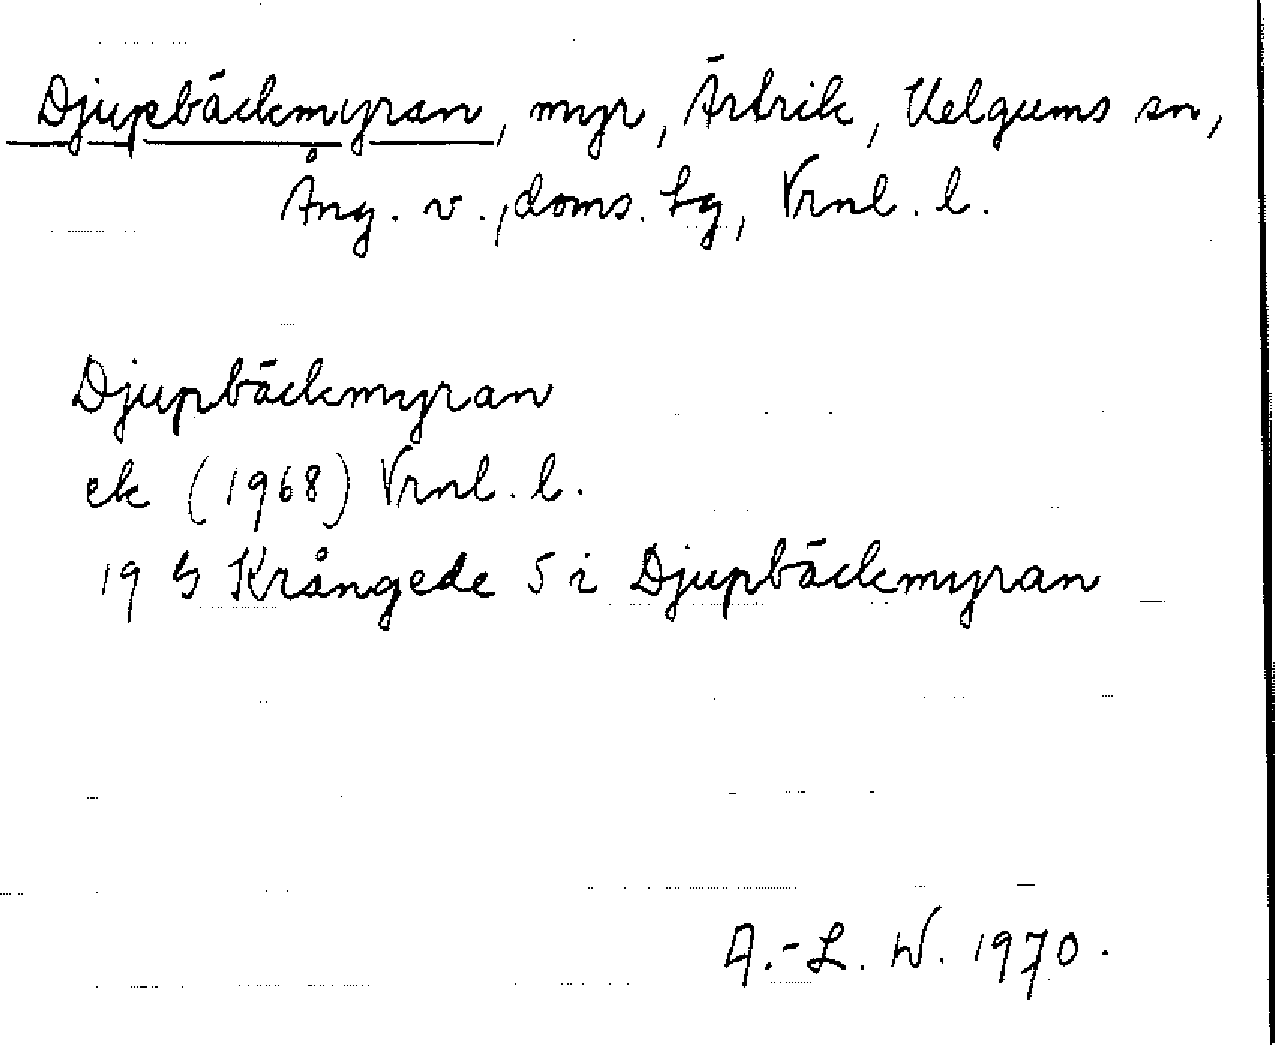 Djupebäckmyran, myr, Ärtrik, Helgums sn,
Ång. v., doms. lg, Vrnl. l.
Djupbäckmyran
ek (1968) Vrnl. l.
19 G Krångede 5 i Djupbäckmyran
A.-L. W. 1970.